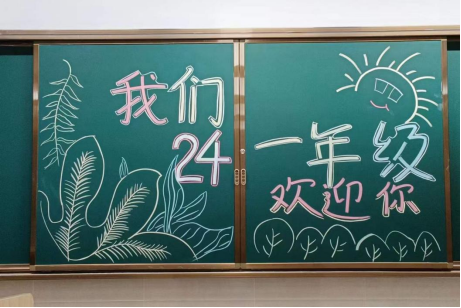 我们 一年级
24 欢迎你